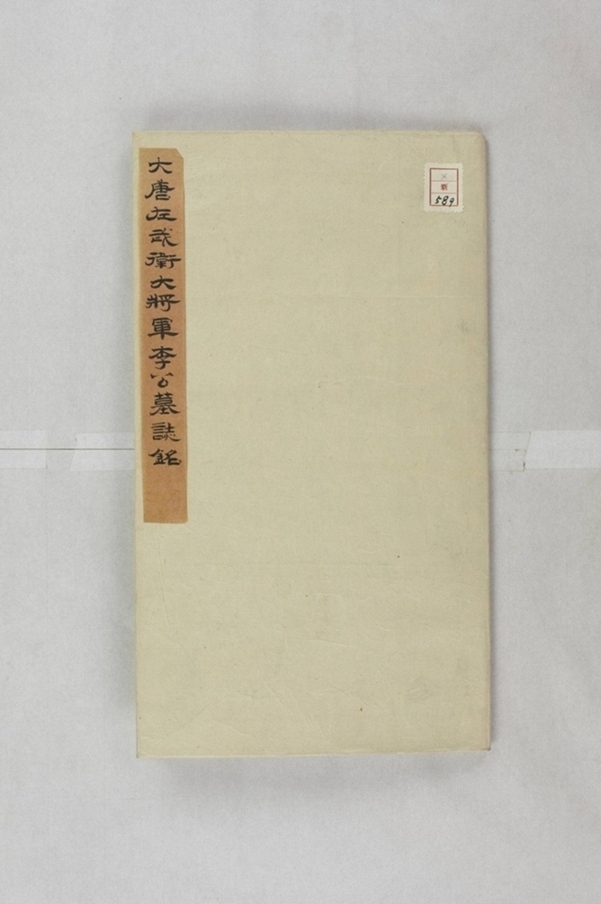 大唐左武衛大將軍李公墓誌銘
589